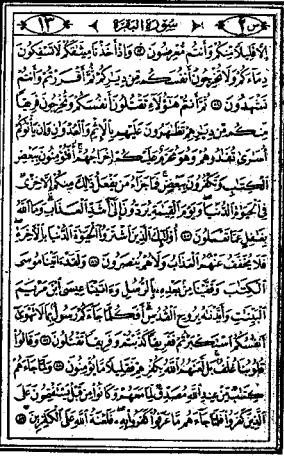 سورة البقرة ١٣
إِلَّا قَلِيلًا مِّنكُمْ وَأَنتُم مُّعْرِضُونَ وَإِذْ أَخَذْنَا مِيثَٰقَكُمْ لَا تَسْفِكُونَ
دِمَآءَكُمْ وَلَا تُخْرِجُونَ أَنفُسَكُم مِّن دِيَٰرِكُمْ ثُمَّ أَقْرَرْتُمْ وَأَنتُمْ
تَشْهَدُونَ ثُمَّ أَنتُمْ هَٰٓؤُلَآءِ تَقْتُلُونَ أَنفُسَكُمْ وَتُخْرِجُونَ فَرِيقًا
مِّنكُم مِّن دِيَٰرِهِمْ تَظَٰهَرُونَ عَلَيْهِم بِٱلْإِثْمِ وَٱلْعُدْوَٰنِ وَإِن يَأْتُوكُمْ
أُسَٰرَىٰ تُفَٰدُوهُمْ وَهُوَ مُحَرَّمٌ عَلَيْكُمْ إِخْرَاجُهُمْ أَفَتُؤْمِنُونَ بِبَعْضِ
ٱلْكِتَٰبِ وَتَكْفُرُونَ بِبَعْضٍ فَمَا جَزَآءُ مَن يَفْعَلُ ذَٰلِكَ مِنكُمْ إِلَّا خِزْىٌ
فِى ٱلْحَيَوٰةِ ٱلدُّنْيَا وَيَوْمَ ٱلْقِيَٰمَةِ يُرَدُّونَ إِلَىٰٓ أَشَدِّ ٱلْعَذَابِ وَمَا ٱللَّهُ
بِغَٰفِلٍ عَمَّا تَعْمَلُونَ أُو۟لَٰٓئِكَ ٱلَّذِينَ ٱشْتَرَوُا۟ ٱلْحَيَوٰةَ ٱلدُّنْيَا بِٱلْءَاخِرَةِ
فَلَا يُخَفَّفُ عَنْهُمُ ٱلْعَذَابُ وَلَا هُمْ يُنصَرُونَ وَلَقَدْ ءَاتَيْنَا مُوسَى
ٱلْكِتَٰبَ وَقَفَّيْنَا مِنۢ بَعْدِهِۦ بِٱلرُّسُلِ وَءَاتَيْنَا عِيسَى ٱبْنَ مَرْيَمَ
ٱلْبَيِّنَٰتِ وَأَيَّدْنَٰهُ بِرُوحِ ٱلْقُدُسِ أَفَكُلَّمَا جَآءَكُمْ رَسُولٌۢ بِمَا لَا تَهْوَىٰٓ
أَنفُسُكُمُ ٱسْتَكْبَرْتُمْ فَفَرِيقًا كَذَّبْتُمْ وَفَرِيقًا تَقْتُلُونَ وَقَالُوا۟
قُلُوبُنَا غُلْفٌۢ بَل لَّعَنَهُمُ ٱللَّهُ بِكُفْرِهِمْ فَقَلِيلًا مَّا يُؤْمِنُونَ وَلَمَّا جَآءَهُمْ
كِتَٰبٌ مِّنْ عِندِ ٱللَّهِ مُصَدِّقٌ لِّمَا مَعَهُمْ وَكَانُوا۟ مِن قَبْلُ يَسْتَفْتِحُونَ عَلَى
ٱلَّذِينَ كَفَرُوا۟ فَلَمَّا جَآءَهُم مَّا عَرَفُوا۟ كَفَرُوا۟ بِهِۦ فَلَعْنَةُ ٱللَّهِ عَلَى ٱلْكَٰفِرِينَ